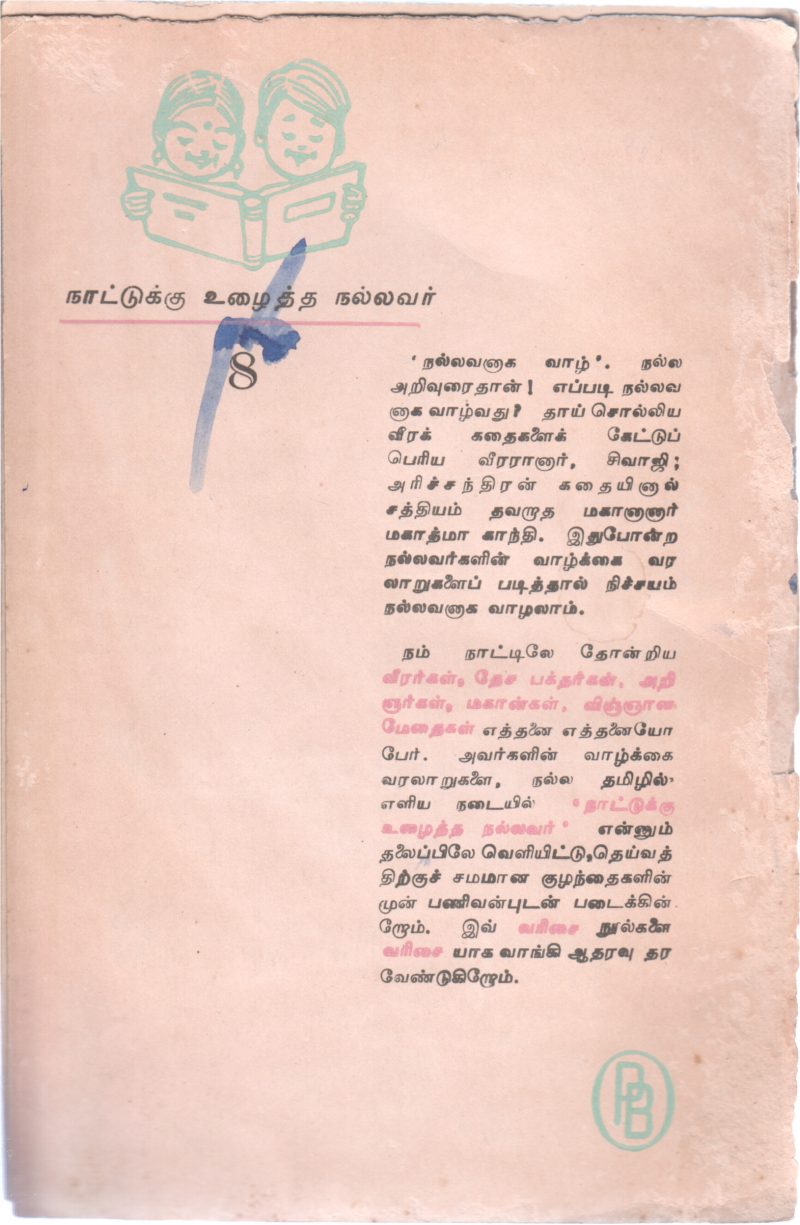 நாட்டுக்கு உழைத்த நல்லவர்
8
'நல்லவனாக வாழ்'. நல்ல
அறிவுரைதான்! எப்படி நல்லவ
னாக வாழ்வது? தாய் சொல்லிய
வீரக் கதைகளைக் கேட்டுப்
பெரிய வீரரானார், சிவாஜி;
அரிச்சந்திரன் கதையினால்
சத்தியம் தவறாத மகானானார்
மகாத்மா காந்தி. இதுபோன்ற
நல்லவர்களின் வாழ்க்கை வர
லாறுகளைப் படித்தால் நிச்சயம்
நல்லவனாக வாழலாம்.
நம் நாட்டிலே தோன்றிய
வீரர்கள், தேச பக்தர்கள், அறி
ஞர்கள், மகான்கள், விஞ்ஞான
மேதைகள் எத்தனை எத்தனையோ
பேர். அவர்களின் வாழ்க்கை
வரலாறுகளை, நல்ல தமிழில்
எளிய நடையில் 'நாட்டுக்கு
உழைத்த நல்லவர்' என்னும்
தலைப்பிலே வெளியிட்டு,தெய்வத்
திற்குச் சமமான குழந்தைகளின்
முன் பணிவன்புடன் படைக்கின்
றோம். இவ் வரிசை நூல்களை
வரிசை யாக வாங்கி ஆதரவு தர
வேண்டுகிறோம்.
PB